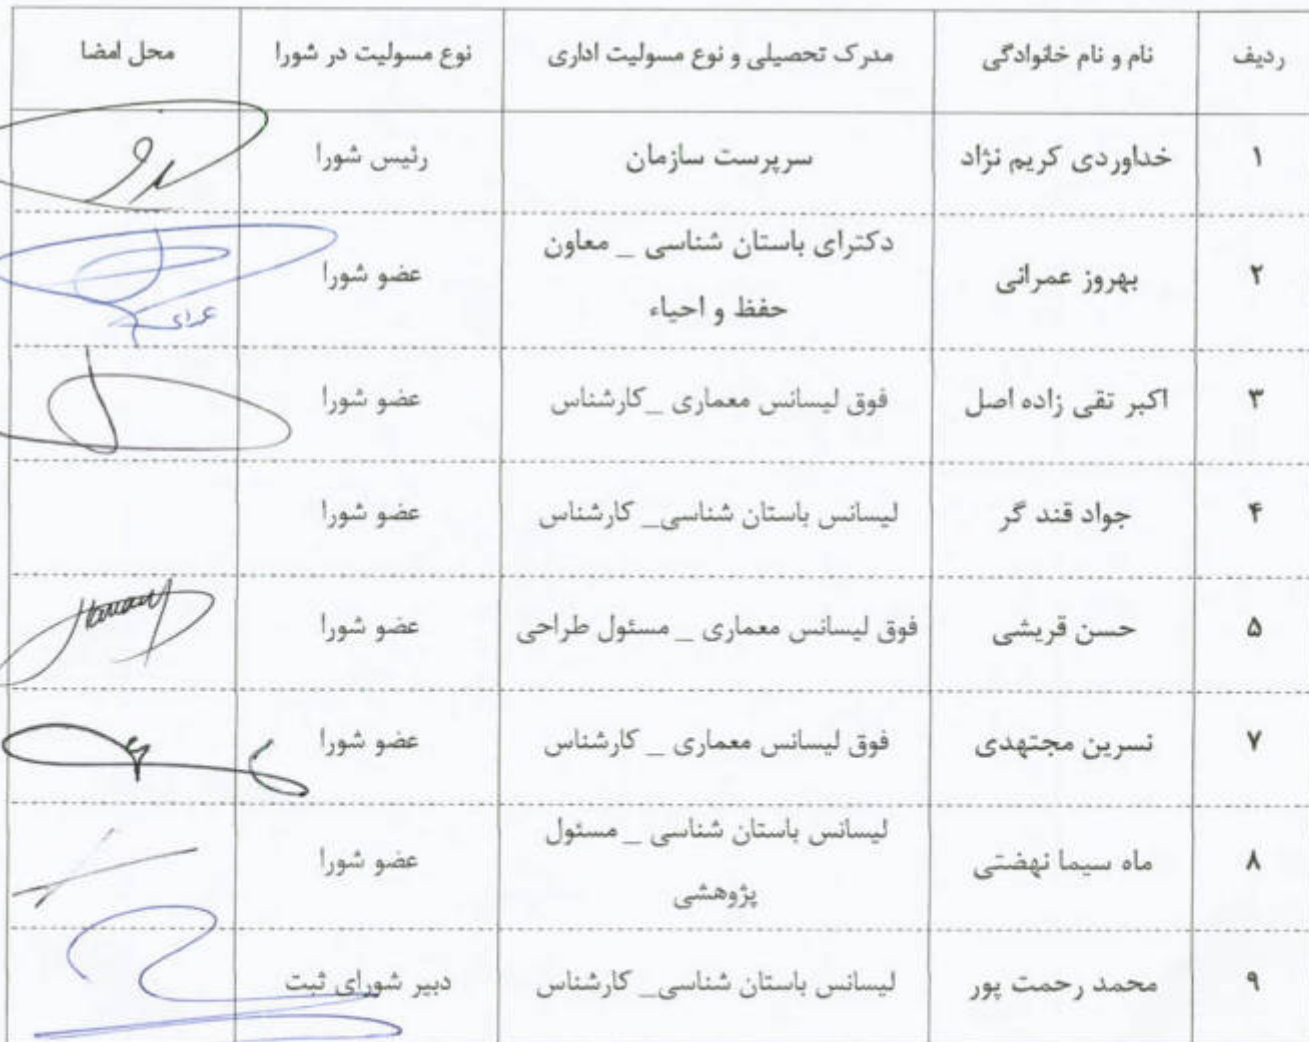 ردیف نام و نام خانوادگی مدرک تحصیلی و نوع مسولیت اداری نوع مسولیت در شورا محل امضا
۱ خداوردی کریم نژاد سرپرست سازمان رئیس شورا
۲ بهروز عمرانی دکترای باستان شناسی _ معاون عضو شورا
حفظ و احیاء
۳ اکبر تقی زاده اصل فوق لیسانس معماری _کارشناس عضو شورا
۴ جواد قند گر لیسانس باستان شناسی_ کارشناس عضو شورا
۵ حسن قریشی فوق لیسانس معماری _ مسئول طراحی عضو شورا
۷ نسرین مجتهدی فوق لیسانس معماری _ کارشناس عضو شورا
۸ ماه سیما نهضتی لیسانس باستان شناسی _ مسئول عضو شورا
پژوهشی
۹ محمد رحمت پور لیسانس باستان شناسی_ کارشناس دبیر شورای ثبت